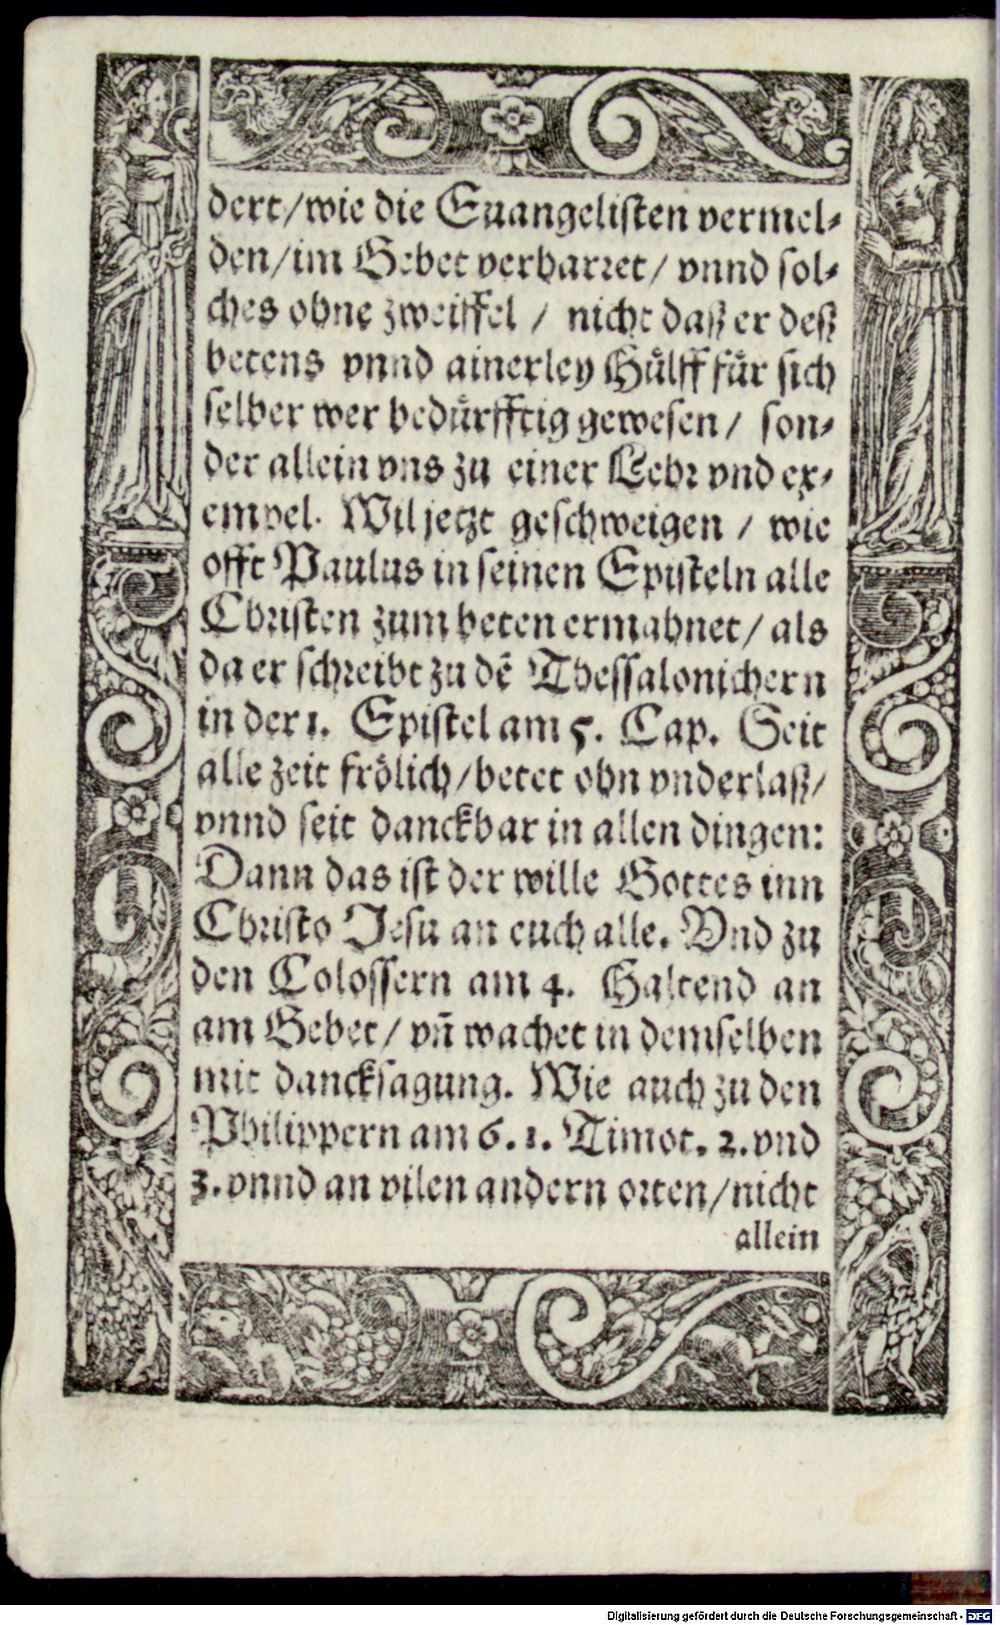 dert/wie die Euangelisten vermel⸗
den/im Gebet verharret/ vnnd sol⸗
ches ohne zweiffel / nicht daß er deß
betens vnnd ainerley Hülff für sich
selber wer bedürfftig gewesen/ son⸗
der allein vns zu einer Lehr vnd ex⸗
empel. Wil jetzt geschweigen / wie
offt Paulus in seinen Episteln alle
Christen zum beten ermahnet/ als
da er schreibt zu dē Thessalonichern
in der 1. Epistel am 5. Cap. Seit
alle zeit frölich/betet ohn vnderlaß/
vnnd seit danckbar in allen dingen:
Dann das ist der wille Gottes inn
Christo Jesu an euch alle. Vnd zu
den Colossern am 4. Haltend an
am Gebet/ vñ wachet in demselben
mit dancksagung. Wie auch zu den
Philippern am 6. 1. Timot. 2. vnd
3. vnnd an vilen andern orten/nicht
allein
Digitalisierung gefördert durch die Deutsche Forschungsgemeinschaft - DFG